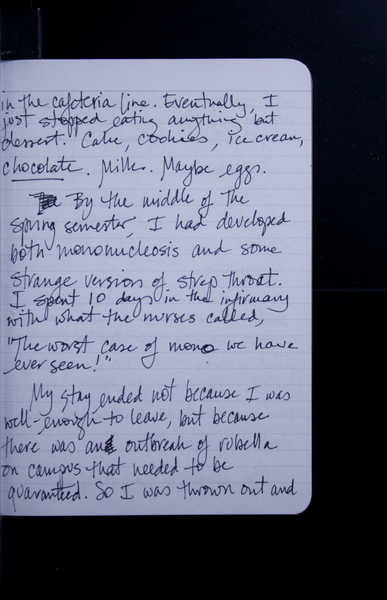 in the cafeteria line. Eventually, I
just stopped eating anything but
dessert. Cake, cookies, ice cream,
chocolate. Milk. Maybe eggs.
By the middle of the
spring semester, I had developed
both mononucleosis and some
strange version of strep throat.
I spent 10 days in the infirmary
with what the nurses called,
"The worst case of mono we have
ever seen!"
My stay ended not because I was
well-enough to leave, but because
there was an outbreak of rubella
on campus that needed to be
quarantied. So I was thrown out and